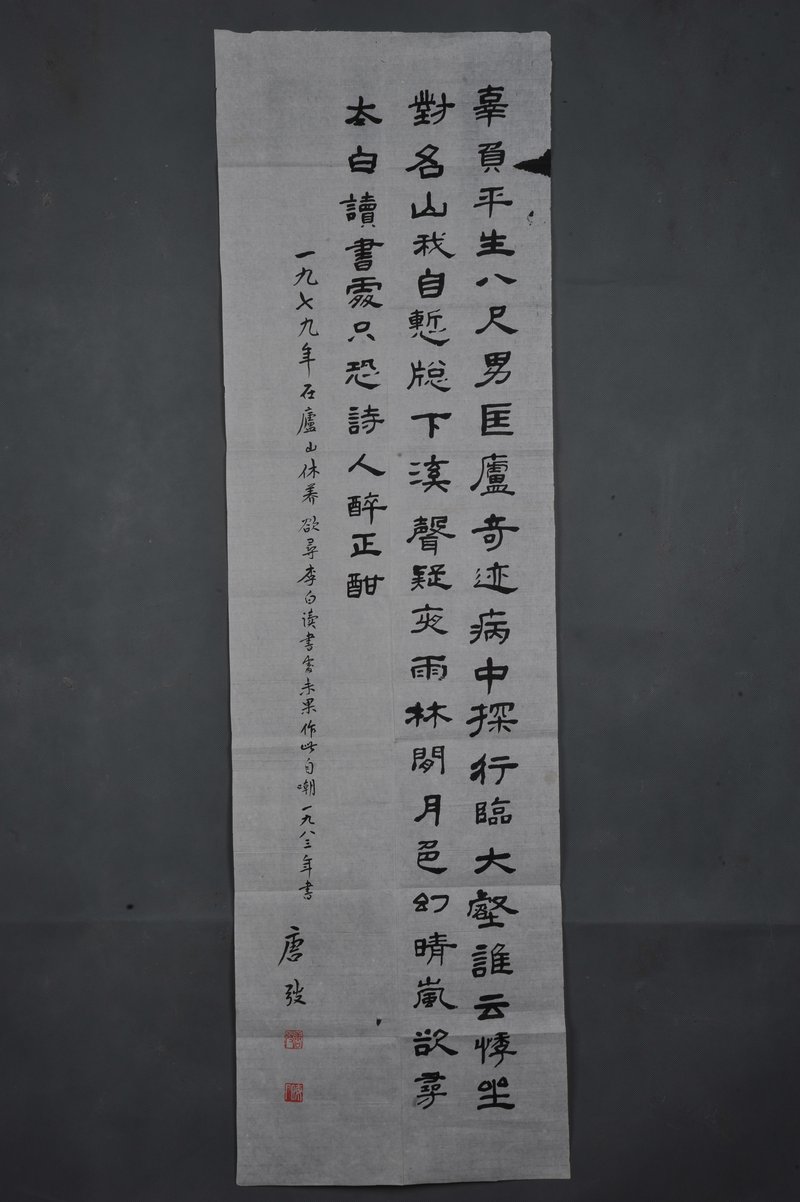 辜負平生八尺男匡廬奇迹病中探行臨大壑誰云悸坐
對名山我自慙牕下溪聲疑夜雨林間月色幻晴嵐欲尋
太白讀書處只恐詩人醉正酣
一九七九年在廬山休养欲寻李白读书堂未果作此自嘲一九八三年书
唐弢